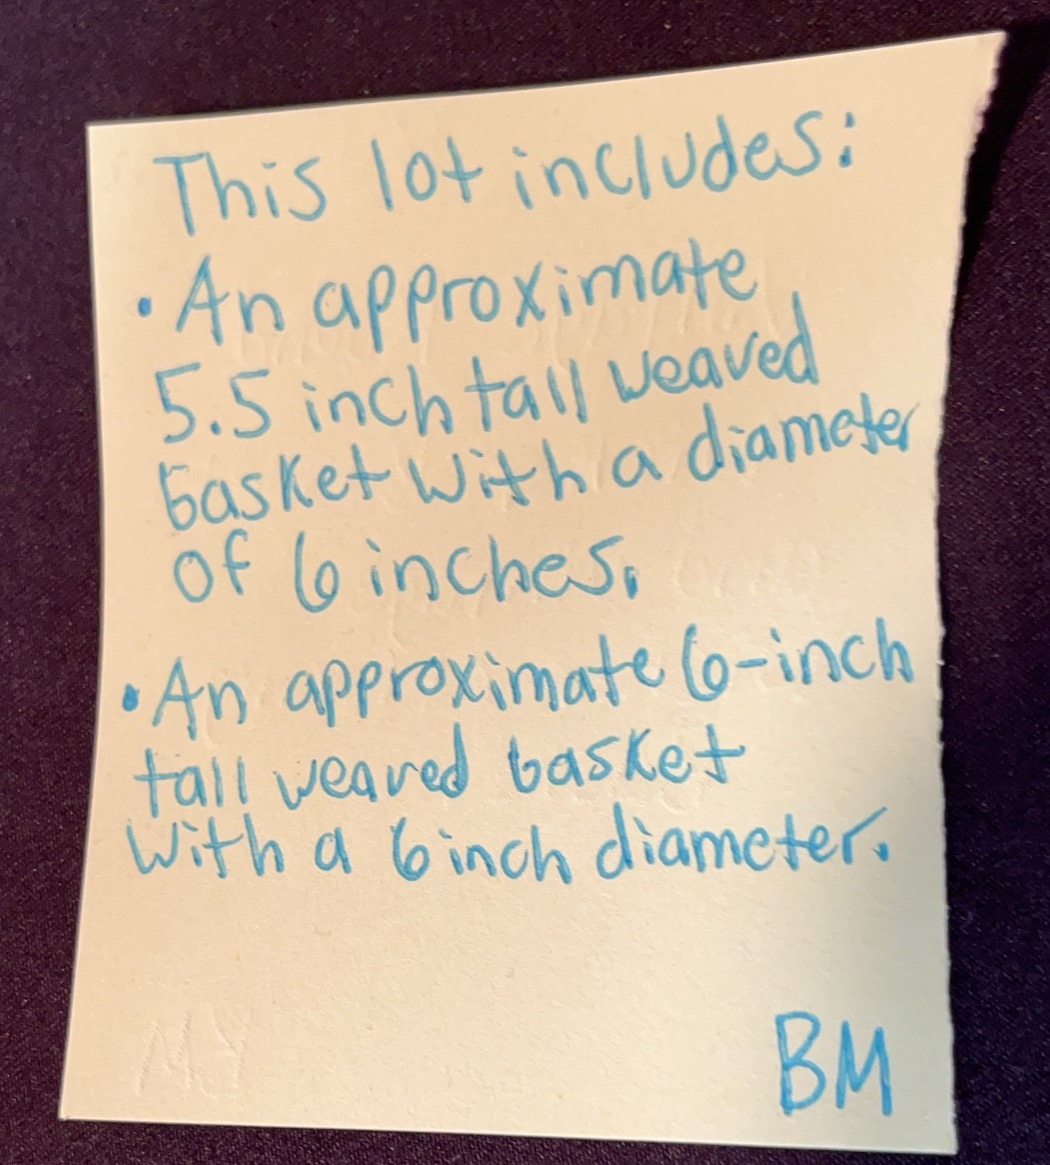 This lot includes:
• An approximate
5.5 inch tall weaved
basket with a diameter
of 6 inches.
• An approximate 6-inch
tall weaved basket
with a 6 inch diameter.
MY
BM